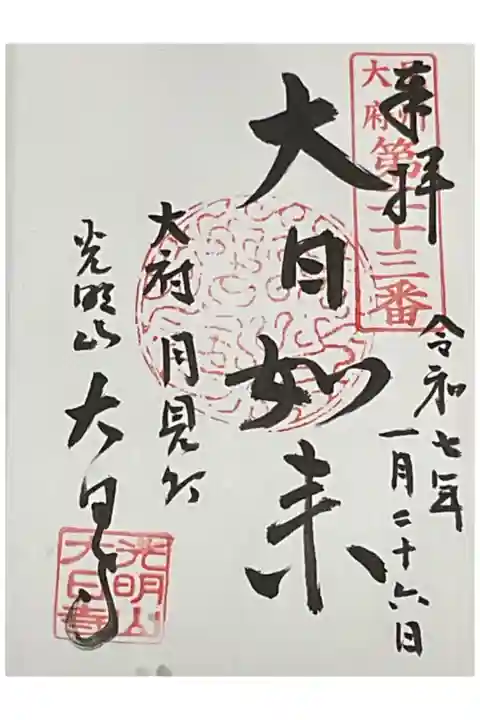 奉拝
大府
十三番
令和七年
一月二十六日
大日如来
大府 月見
光明山 大日寺
光明山
大日寺